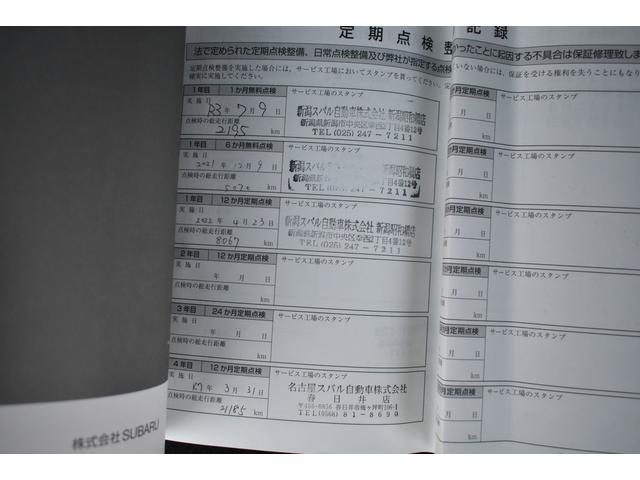 定期点検整
記録
法で定められた定期点検整備、日常点検整備及び弊社が指定する点検
かったことに起因する不具合は保証修理致しま
定期点検整備を実施した場合には、サービス工場においてスタンプを貰ってください。
いない場合には、保証を受ける権利を失うことにもなり
確実に実施してください。
1年目 1か月無料点検
サービス工場のスタンプ
実施日
R3年 7月 9日
点検時の総走行距離
2195 km
新潟スバル自動車株式会社 新潟昭和橋店
新潟県新潟市中央区幸西2丁目4番12号
TEL(025)247-7211
1年目 6か月無料点検
サービス工場のスタンプ
実施日
2021年 12月 9日
点検時の総走行距離
km
TEL(025)247-7211
1年目 12か月定期点検
サービス工場のスタンプ
実施日
2022年 4月 23日
点検時の総走行距離
8067 km
新潟スバル自動車株式会社 新潟昭和橋店
新潟県新潟市中央区幸西2丁目4番12号
TEL(025)247-7211
2年目 12か月定期点検
サービス工場のスタンプ
実施日
年 月 日
点検時の総走行距離
km
3年目 24か月定期点検
サービス工場のスタンプ
実施日
年 月 日
点検時の総走行距離
km
4年目 12か月定期点検
サービス工場のスタンプ
実施日
R7年 3月 31日
点検時の総走行距離
21185 km
名古屋スバル自動車株式会社
春日井店
TEL(0568)81-8698
株式会社 SUBARU